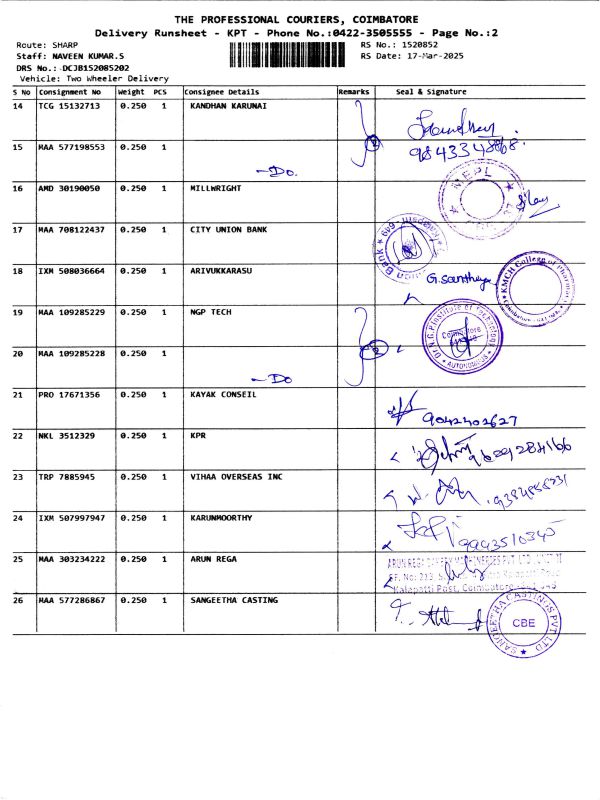 THE PROFESSIONAL COURIERS, COIMBATORE
Delivery Runsheet - KPT - Phone No.:0422-3505555 - Page No.:2
Route: SHARP RS No.: 1520852
Staff: NAVEEN KUMAR.S RS Date: 17-Mar-2025
DRS No.: DCJB152085202
Vehicle: Two Wheeler Delivery
S No Consignment No Weight PCS Consignee Details Remarks Seal & Signature
14 TCG 15132713 0.250 1 KANDHAN KARUNAI
15 MAA 577198553 0.250 1 9843348868.
—Do.
16 AMD 30190050 0.250 1 MILLWRIGHT
MEPL
17 MAA 708122437 0.250 1 CITY UNION BANK
18 IXM 508036664 0.250 1 ARIVUKKARASU G. Santhiya
KMCH College of Pharmacy
19 MAA 109285229 0.250 1 NGP TECH
Dr. N.G.P. Institute of Technology
Coimbatore
AUTONOMOUS
20 MAA 109285228 0.250 1
—Do
21 PRO 17671356 0.250 1 KAYAK CONSEIL
9042402627
22 NKL 3512329 0.250 1 KPR
23 TRP 7885945 0.250 1 VIHAA OVERSEAS INC
24 IXM 507997947 0.250 1 KARUNMOORTHY
9943510345
25 MAA 303234222 0.250 1 ARUN REGA
Kalapatti Post, Coimbatore
26 MAA 577286867 0.250 1 SANGEETHA CASTING
SANGEETHA CASTINGS PVT LTD
CBE